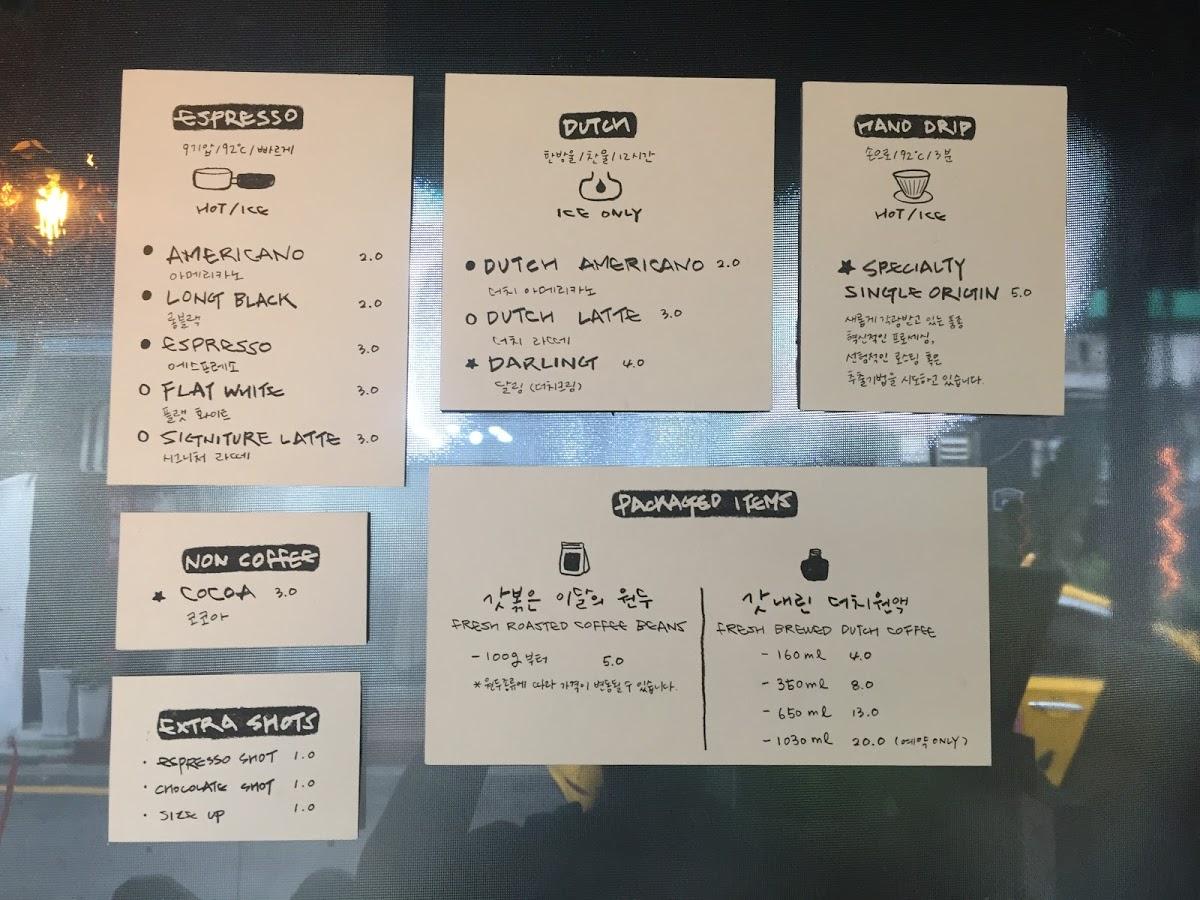 ESPRESSO
9기압/92°C/빠르게
HOT/ICE
AMERICANO 2.0
아메리카노
LONG BLACK 2.0
롱블랙
ESPRESSO 3.0
에스프레소
FLAT WHITE 3.0
플랫 화이트
SIGNITURE LATTE 3.0
시그니처 라떼
DUTCH
한방울/찬물/12시간
ICE ONLY
DUTCH AMERICANO 2.0
더치 아메리카노
DUTCH LATTE 3.0
더치 라떼
DARLING 4.0
달링 (더치크림)
HAND DRIP
손으로/92°C/3분
HOT/ICE
SPECIALTY
SINGLE ORIGIN 5.0
새롭게 각광받고 있는 품종
혁신적인 프로세싱,
실험적인 로스팅 혹은
추출기법을 시도하고 있습니다.
NON COFFEE
COCOA 3.0
코코아
EXTRA SHOTS
· ESPRESSO SHOT 1.0
· CHOCOLATE SHOT 1.0
· SIZE UP 1.0
PACKAGED ITEMS
갓볶은 이달의 원두
FRESH ROASTED COFFEE BEANS
- 100g 부터 5.0
* 원두종류에 따라 가격이 변동될 수 있습니다.
갓내린 더치원액
FRESH BREWED DUTCH COFFEE
- 160ml 4.0
- 350ml 8.0
- 650ml 13.0
- 1030ml 20.0 (예약ONLY)